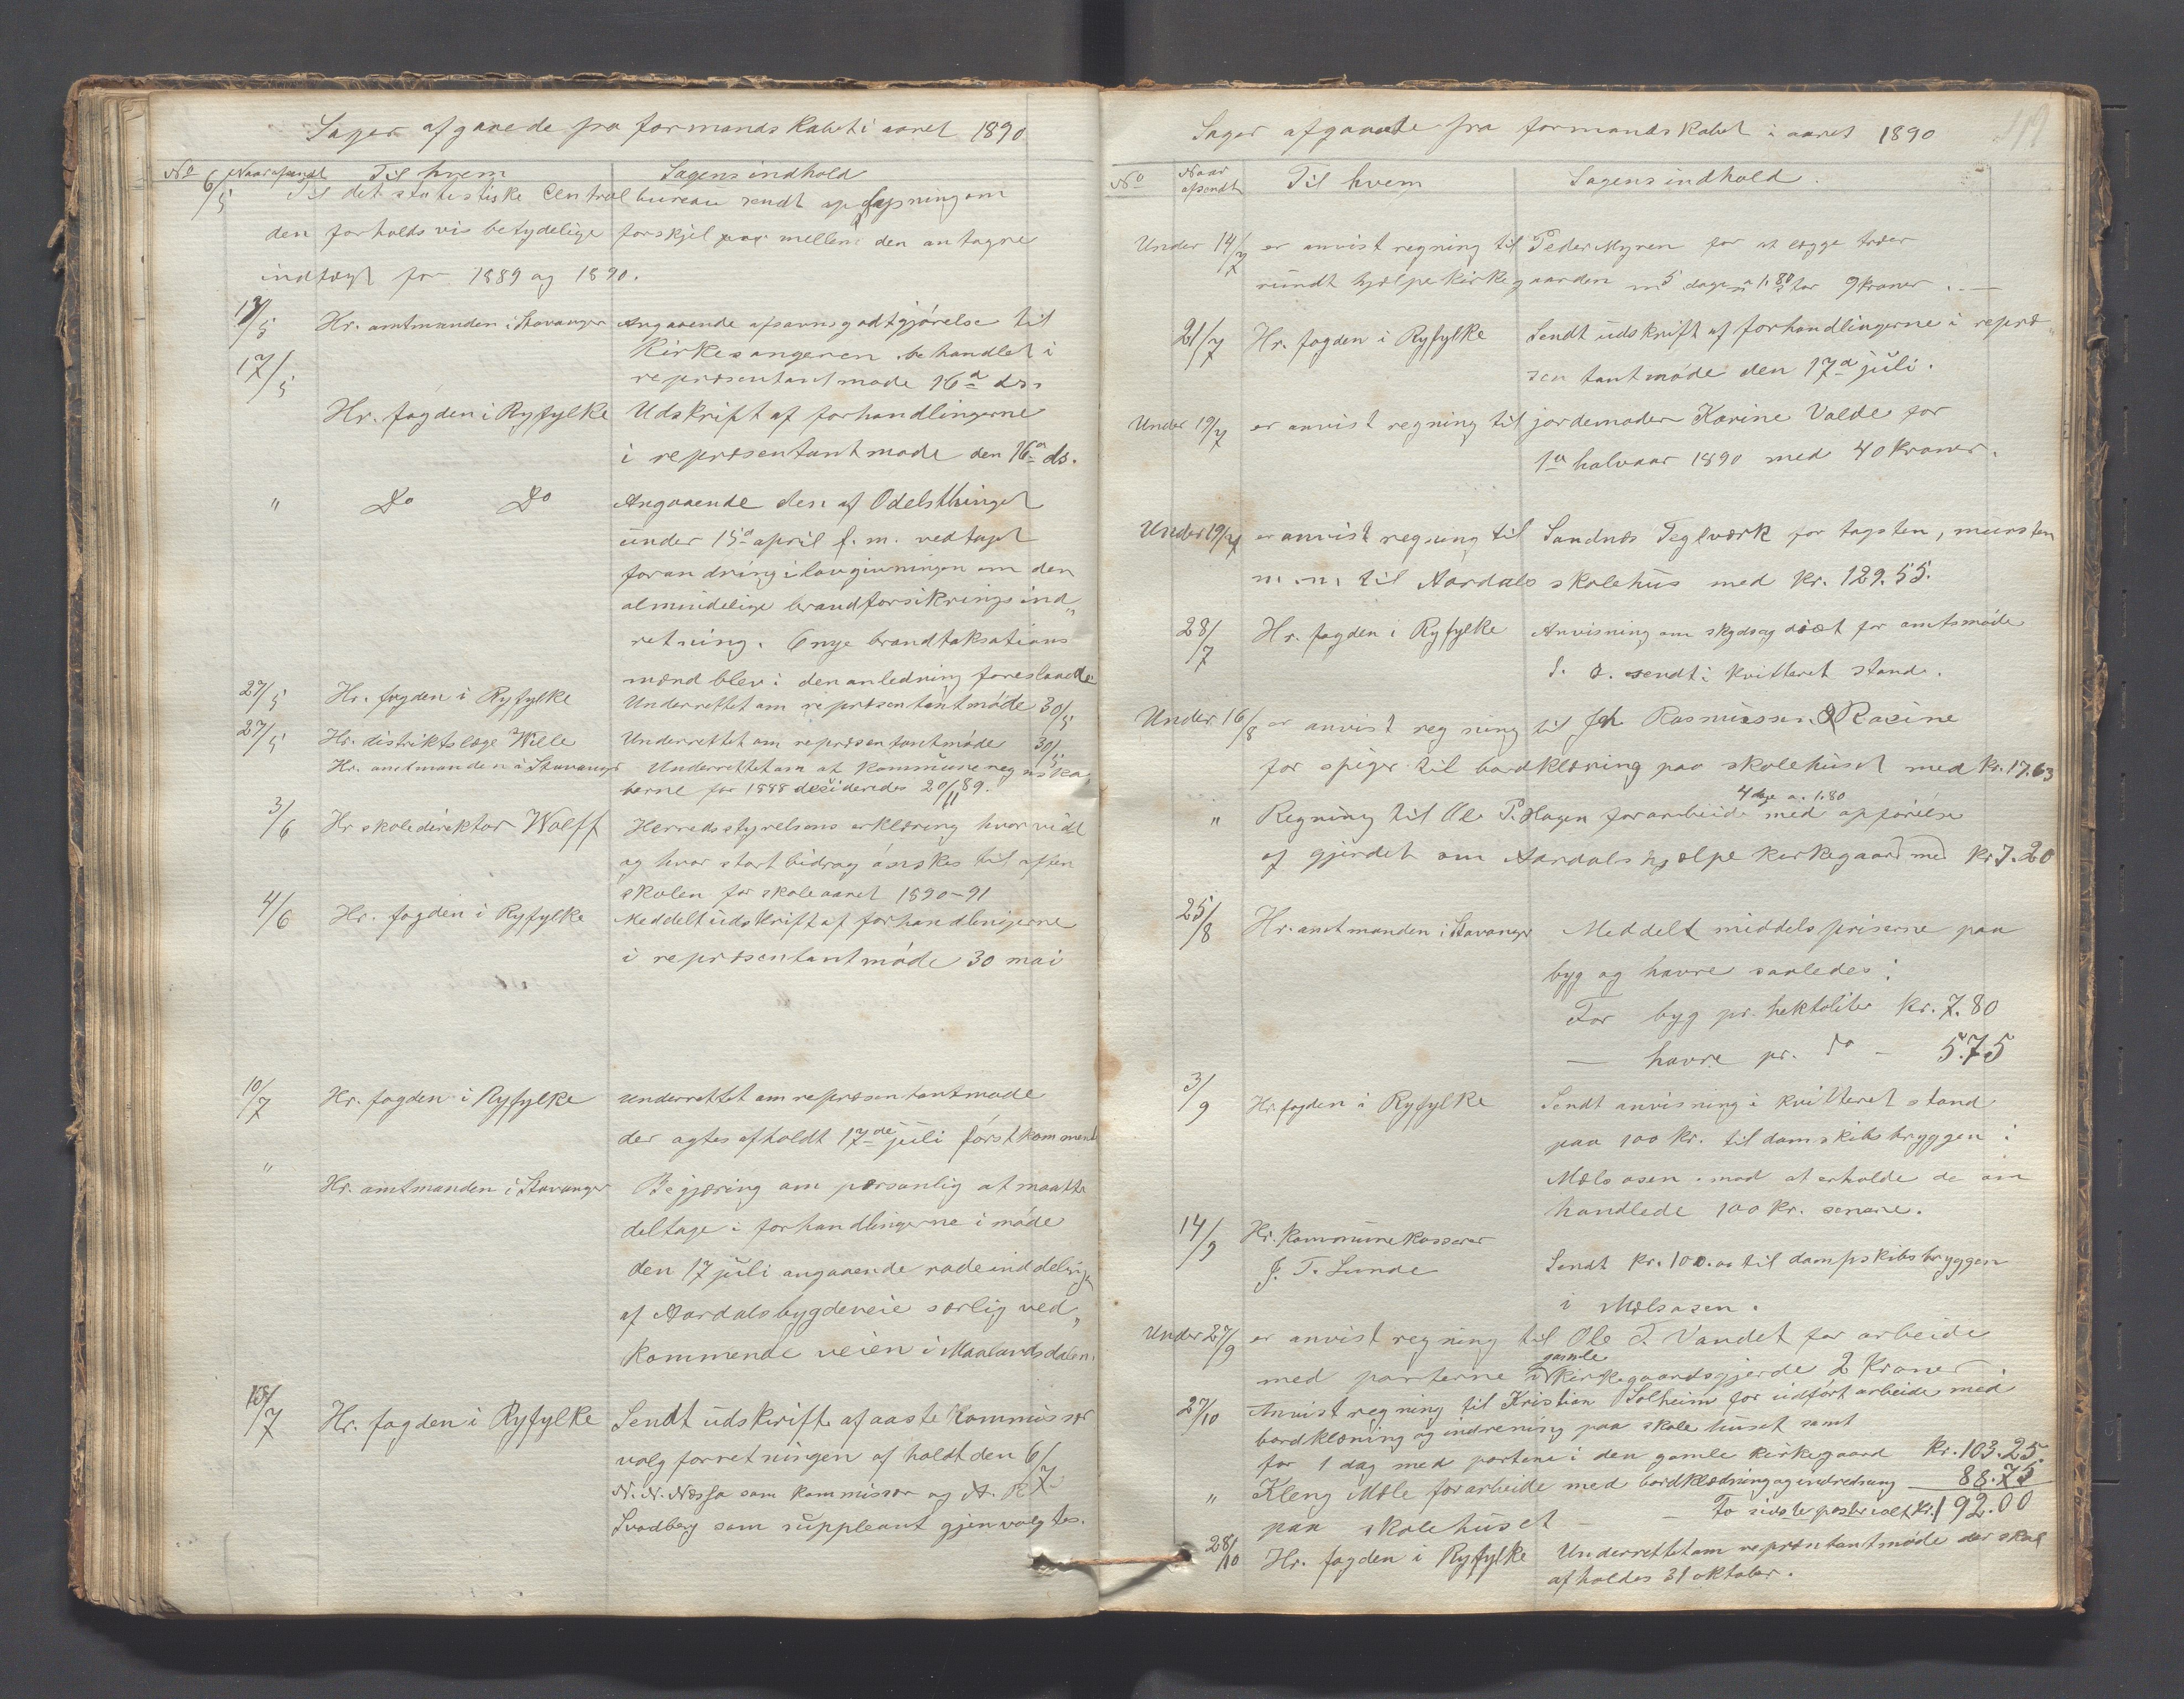 Sager afgaaede fra formandskabet i aaret 1890
No Naar afsendt Til hvem Sagens indhold
6/5 Til det statistiske Centralbureau sendt oplysning om
den forholdsvis betydelige forskjel mellem den antagne
indtægt for 1889 og 1890.
13/5 Hr. amtmanden i Stavanger Angaaende afsavnsgodtgjörelse til
17/5 Kirkesangeren behandlet i
repræsentantmøde 16de ds.
Hr. fogden i Ryfylke Udskrift af forhandlingerne
i repræsentantmøde den 16de ds.
" Do Do Angaaende den af Odelsthinget
under 15de april f. m. vedtagt
forandring i lovgivningen om den
almindelige brandforsikringsind„
retning. 6 nye brandtaksations
mænd blev i den anledning foreslaaede
27/5 Hr. fogden i Ryfylke Underrettet om repræsentantmöde 30/5
27/5 Hr. distriktslæge Wille Underrettet om repræsentantmöde 30/5
Hr. amtmanden i Stavanger Underrettet om at kommuneregnska„
berne for 1888 decideredes 20/11 89.
3/6 Hr skoledirektør Wolff Herredsstyrelsens erklæring hvorvidt
og hvor stort bidrag önskes til aften
skolen for skoleaaret 1890-91
4/6 Hr. fogden i Ryfylke Meddelt udskrift af forhandlingerne
i repræsentantmöde 30 mai
10/7 Hr. fogden i Ryfylke underrettet om repræsentantmøde
der agtes afholdt 17de juli förstkommende
" Hr. amtmanden i Stavanger Begjæring om personlig at maatte
deltage i forhandlingerne i möde
den 17 juli angaaende rodeinddeling
af Aardals bygdeveie særlig ved„
kommende veien i Maalandsdalen.
18/7 Hr. fogden i Ryfylke Sendt udskrift af aaste kommissær
valgforretningen afholdt den 6/7
N. N. Næssa som kommissær og A. R.
Svadberg som suppleant gjenvalgtes.
Sager afgaaede fra formandskabet i aaret 1890
No Naar afsendt Til hvem Sagens indhold.
Under 14/7 er anvist regning til Peder Myren for at lægge træer
rundt hjelpekirkegaarden 5 dage a 1.80 9 kroner. —
21/7 Hr. fogden i Ryfylke Sendt udskrift af forhandlingerne i repræ„
sentantmöde den 17de juli.
Under 19/7 er anvist regning til jordemoder Karine Valde for
1ste halvaar 1890 med 40 kroner.
Under 19/7 er anvist regning til Sandnæs Teglværk for tagsten, mursten
m. m. til Aardals skolehus med kr. 129.55.
28/7 Hr. fogden i Ryfylke Anvisning om skyds og diæt for amtsmöde
sendt i kvitteret stand.
Under 16/8 er anvist regning til Joh Rasmussen & Racine
for spiger til bordklæning paa skolehuset med kr. 17.63
4 dage a. 1.80
" Regning til Ole P. Hagen for arbeide med opførelse
af gjerdet om Aardals hjælpekirkegaard med kr 7.20
25/8 Hr. amtmanden i Stavanger Meddelt middelspriserne paa
byg og havre saaledes:
For byg pr. hektoliter kr. 7.80
— havre pr. Do - 5.75
3/9 Hr. fogden i Ryfylke Sendt anvisning i kvitteret stand
paa 100 kr. til damskibsbryggen i
Mælsosen mod at erholde de om
handlede 100 kr. senere.
14/9 Hr. kommunekasserer
J. T. Lunde Sendt kr. 100.00 til dampskibsbryggen
i Mælsosen.
Under 27/9 er anvist regning til Ole T. Vandet for arbeide
gamle
med porterne i kirkegaardsgjerde 2 kroner
27/10 Anvist regning til Kristian Solheim for udfört arbeide med
bordklæning og indrening paa skolehuset samt
for 1 dag med portene i den gamle kirkegaard kr. 103.25
" Kleng Mæle for arbeide med bordklædning og indredning 88.75
paa skolehuset - - To sidste poster ialt kr. 192.00
28/10 Hr. fogden i Ryfylke Underrettet om repræsentantmöde der skal
afholdes 31 oktober.